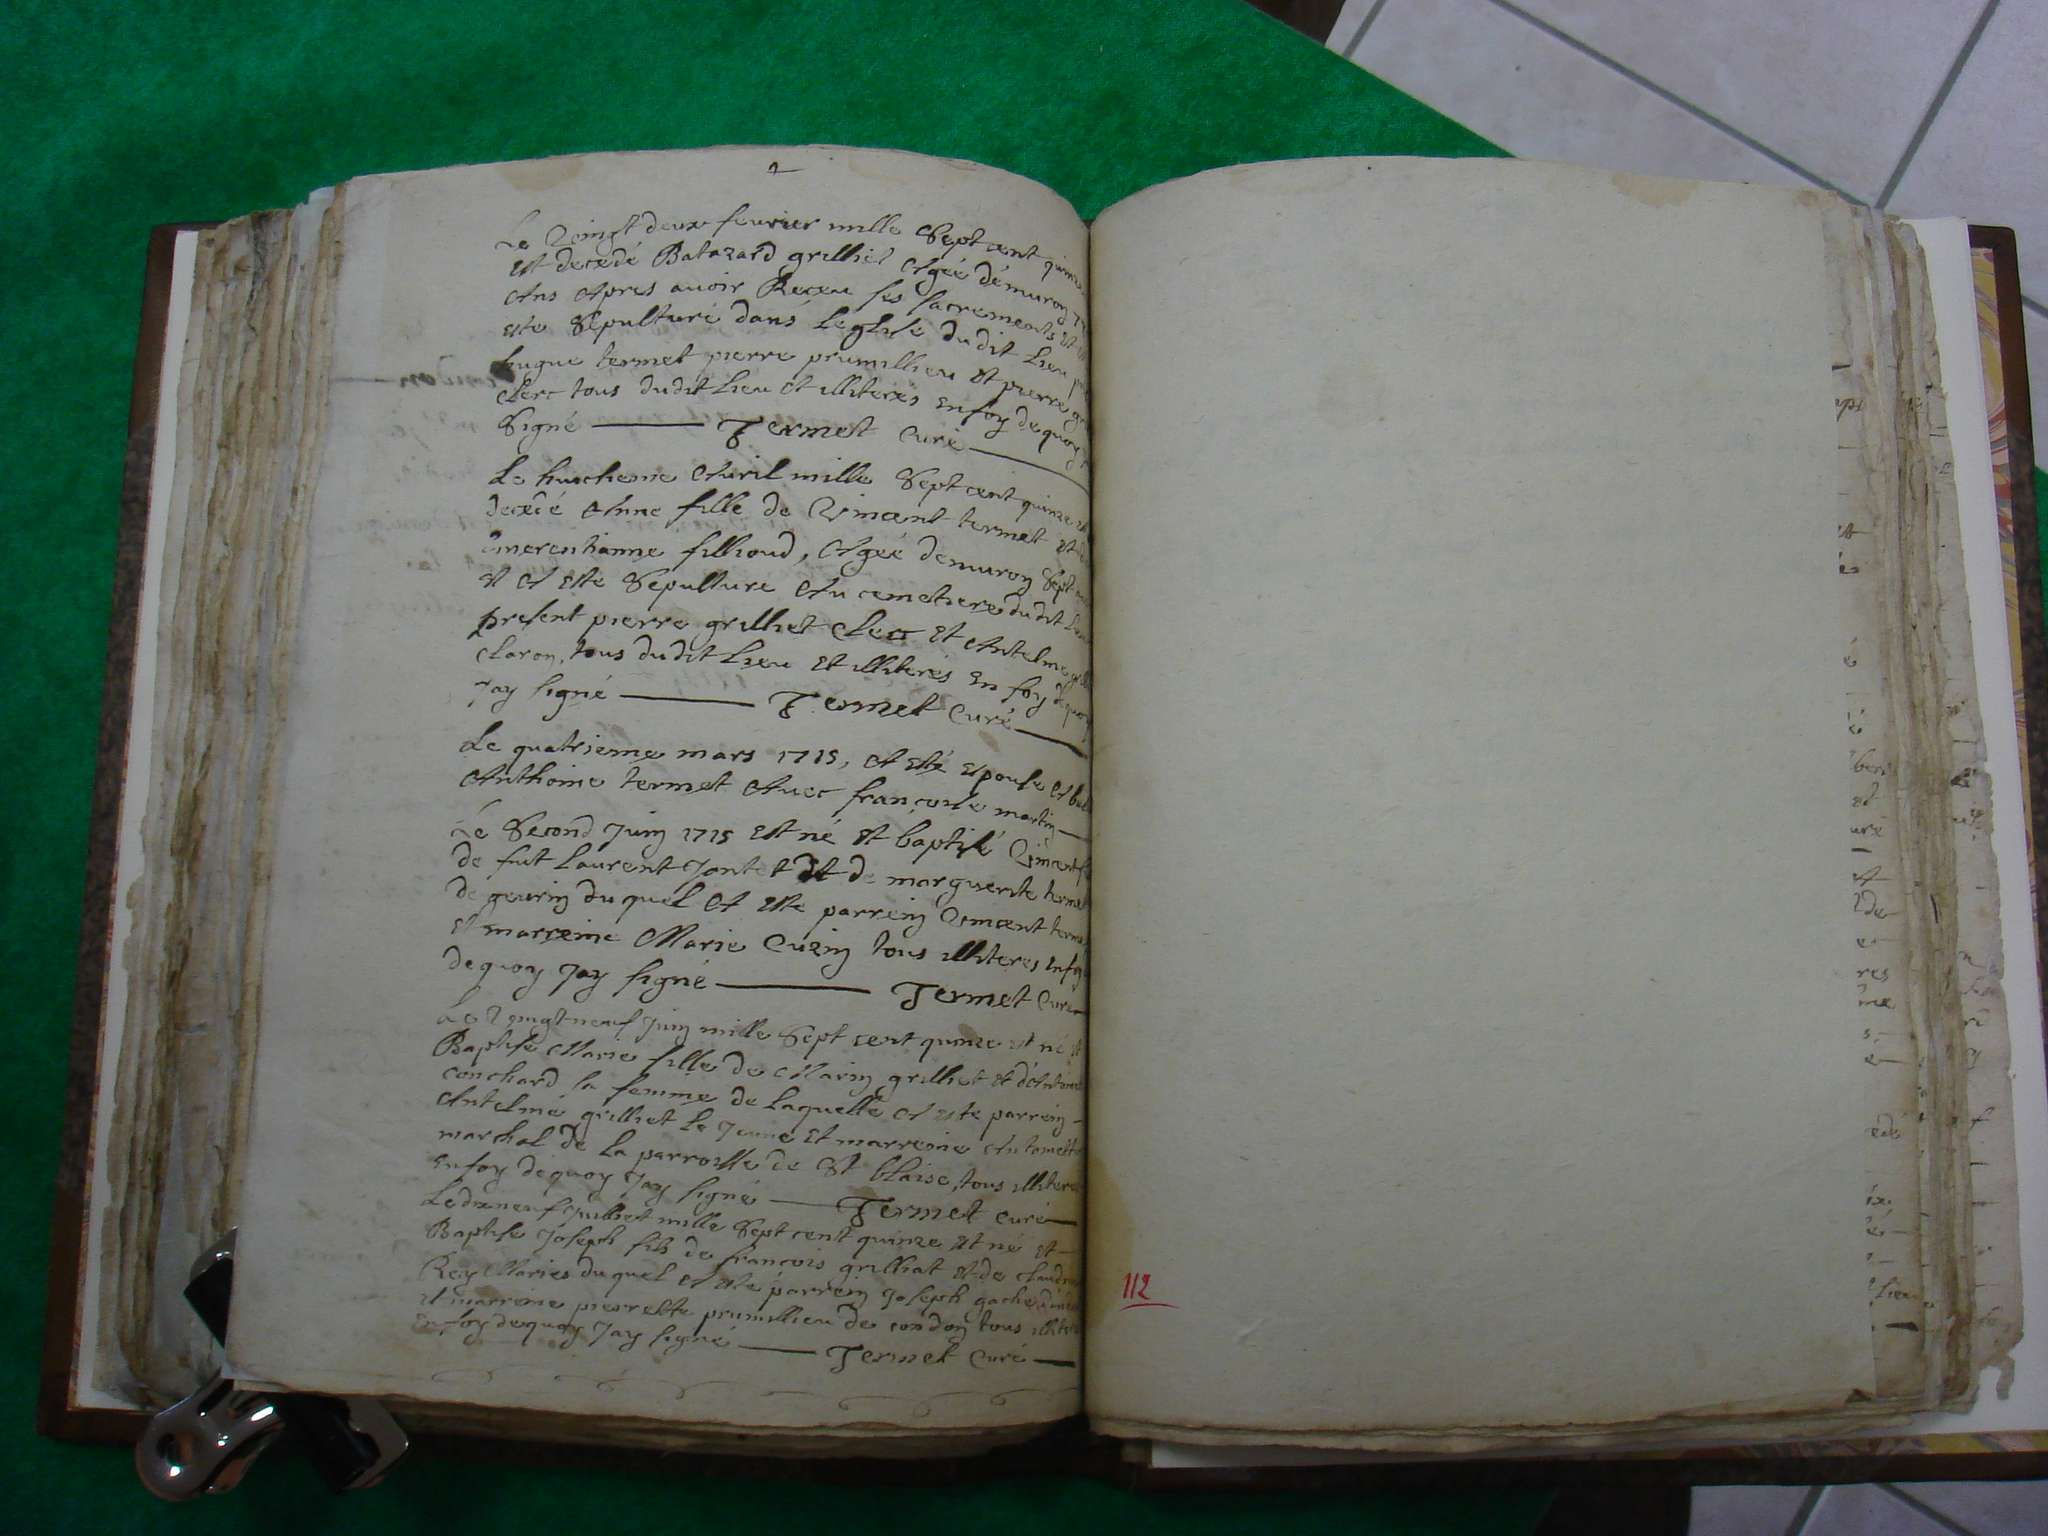 2
Le Vingt deux feurier mille Sept cent quinze
Est decedé Batazard grilliet Agée démuron
Ans Apres auoir Receu ses sacrements Et
este Sepulturé dans Leglise dudit Lieu
hugue termet pierre prumillieu Et pierre
Clerc tous dudit Lieu et illiteres En foy de quoy
Signé Termet Curé
Le huictieme Auril mille Sept cent quinze
decedé Anne fille de Vincent termet et
Emerentianne fillioud, Agée demuron Sept
et A Este Sepulture Au cemetiere dudit
present pierre grilliet Clerc Et Antelme
Claron, tous dudit Lieu Et illiterés En foy de quoy
Jay signé Termet Curé
Le quatrieme mars 1715, A Esté Espouse
Anthoine termet Auec françoise martin
Le Second Juin 1715 Est né Et baptisé Vincent
de fut Laurent Jontet Et de marguerite
de geurin du quel A Este parrein Vincent
Et marreine Marie Cuzin tous illiteres En foy
de quoy Jay signé Termet Curé
Le Vingt neuf Juin mille Sept cent quinze est né
Baptise Marie fille de Marin grilliet Et
conchard sa femme de Laquelle A este parrein
Antelme grilliet Le Jeune Et marreine Antoinette
marchal de La parroisse de St blaise, tous illiteres
En foy de quoy Jay signé Termet Curé
Le dixneuf Juilliet mille Sept cent quinze Est né Et
Baptise Joseph fils de françois grilliat Et de
Rey Maries du quel A Este parrein Joseph
et marreine pierrette prumillieu de condon tous
En foy de quoy Jay signé Termet Curé
112